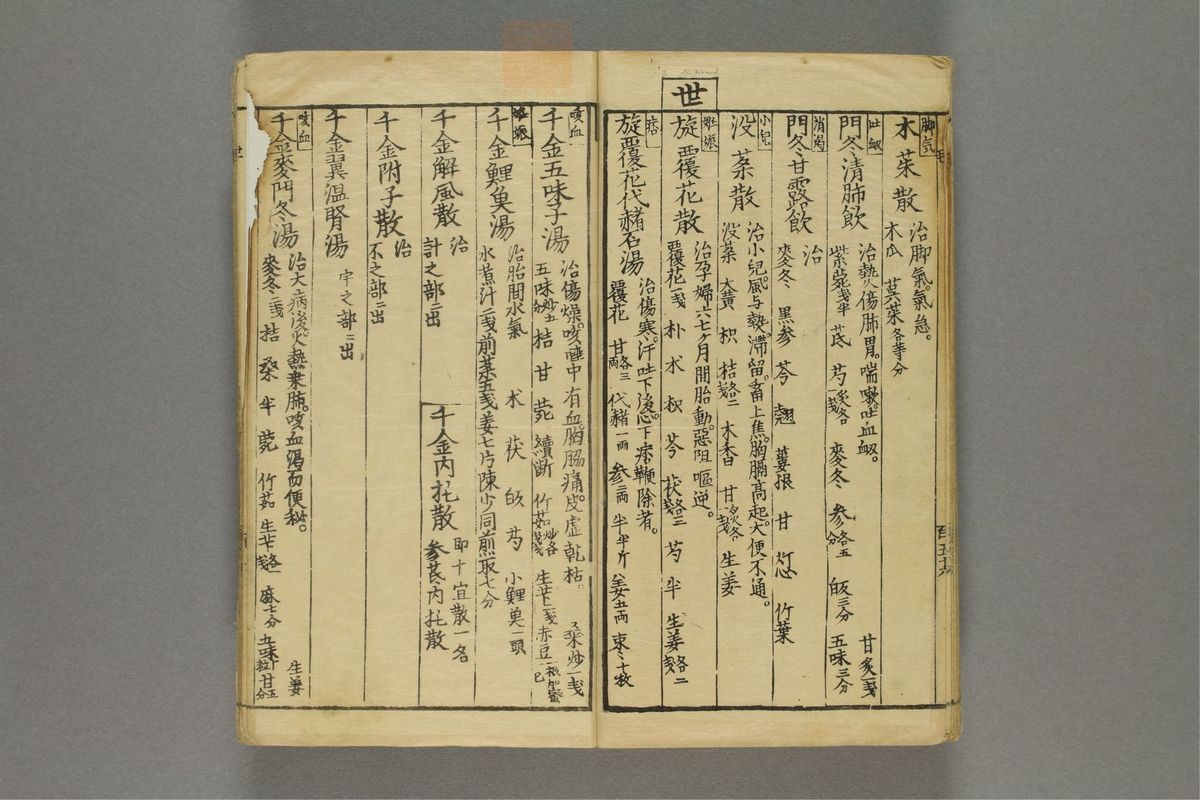 脚気
木茱散
治脚氣。氣急。
木瓜 莫茱各等分
吐衂
門冬清肺飲
治熱傷肺胃。喘嗽。吐血衂。
紫菀戔半 芪 芍 麥冬 参各五分 皈三分 五味三分
甘炙一戔
消渇
門冬甘露飲
治
麥冬 黒参 芩 翹 蔞根 甘 灯心 竹葉
小兒
没薬散
治小兒。風与熱。滞留。畜上焦。胸膈高起。大便不通。
没薬 大黄 枳 桔各二戔 木香 甘 生姜
世
妊娠
旋覆花散
治孕婦六七ケ月間胎動。惡阻嘔逆。
覆花一戔 朴 朮 枳 芩 茯 芍 半 生姜各二戔
痞
旋覆花代赭石湯
治傷寒。汗吐下後。心下痞鞕除者。
覆花 甘各三両 代赭一両 参二両 半半斤 姜五両 棗十枚
咳血
千金五味子湯
治傷燥。咳唾中有血。胸脇痛。皮虚乾枯。
五味炒五分 桔 甘 菀 續断 竹茹 生芐二戔 赤豆
桑炒一戔
妊娠
千金鯉魚湯
治胎間水氣 朮 茯 皈 芍 小鯉魚一頭
水煮汁二戔前薬五戔姜七片陳少同煎取七分
千金解風散
治
計之部ニ出
千金内托散
即十宣散一名
参芪内托散
千金附子散
治
不之部ニ出
千金翼温腎湯
宇之部ニ出
咳血
千金麥門冬湯
治大病後。火熱乗肺。咳血渇而便秘。
麥冬二戔 桔 桑 半 菀 竹茹 生芐各一戔 麻七分 五味十粒 甘五分
生姜